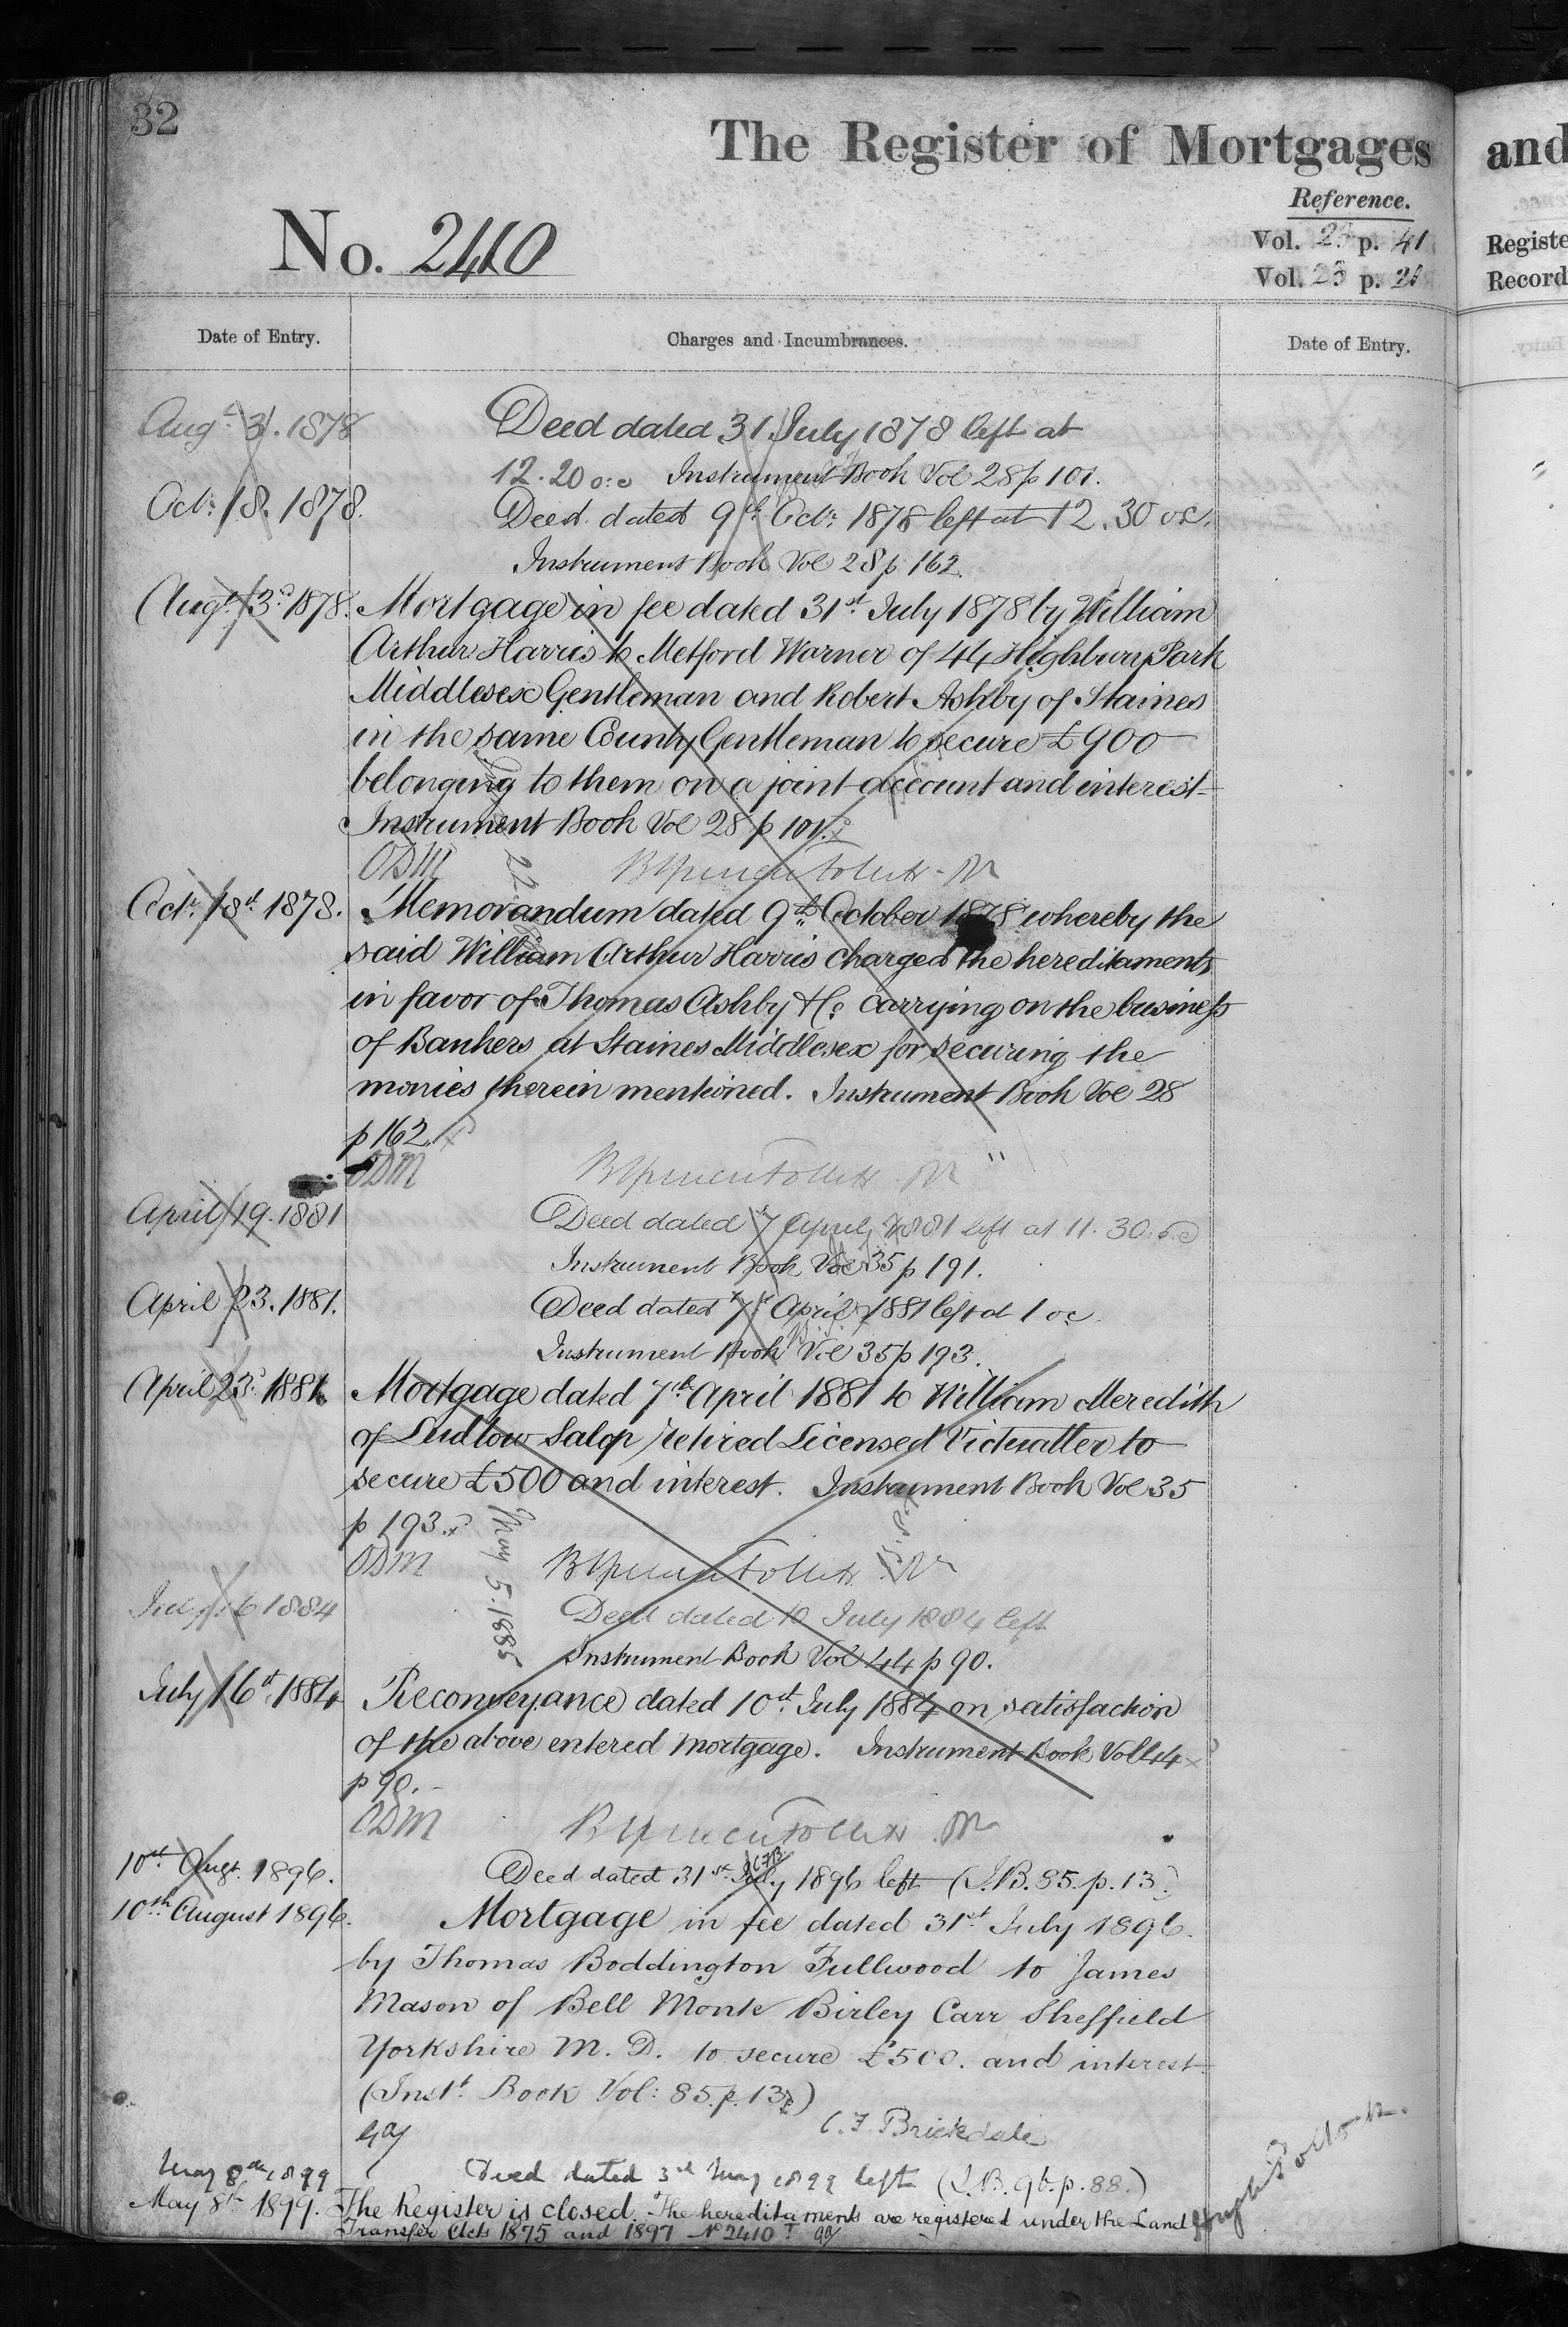 32
The Register of Mortgages
and
Reference.
No. 2410
Vol. p. 41
Vol. 23 p.
Registe
Record
Date of Entry.
Charges and Incumbrances.
Date of Entry.
Augt. 3. 1878 Deed dated 31 July 1878 left at
12.20 o:c Instrument Book Vol 28 p 101.
Octr. 18. 1878. Deed dated 9th Octr. 1878 left at 12.30 oc.
Instrument Book Vol 28 p 162.
Augt. 3rd. 1878. Mortgage in fee dated 31st July 1878 by William
Arthur Harris to Metford Warner of 44 Highbury Park
Middlesex Gentleman and Robert Ashby of Staines
in the same County Gentleman to secure £900
belonging to them on a joint account and interest
Instrument Book Vol 28 p 101.
ODM
Octr. 18th 1878. Memorandum dated 9th October 1878 whereby the
said William Arthur Harris charged the hereditaments
in favor of Thomas Ashby & Co carrying on the business
of Bankers at Staines Middlesex for securing the
monies therein mentioned. Instrument Book Vol 28
p 162.
ODM
April 19. 1881 Deed dated 7 April 1881 left at 11.30. o.c
Instrument Book Vol 35 p 191.
April 23. 1881. Deed dated 7th April 1881 left at 1 oc.
Instrument Book Vol 35 p 193.
April 23d. 1881. Mortgage dated 7th April 1881 to William Meredith
of Ludlow Salop retired Licensed Victualler to
secure £500 and interest. Instrument Book Vol 35
p 193.
ODM
May 5. 1885
July 16 1884 Deed dated 10 July 1884 left
Instrument Book Vol 44 p 90.
July 16th 1884 Reconveyance dated 10th July 1884 on satisfaction
of the above entered mortgage. Instrument Book Vol 44
p 90.
ODM
10th Augt. 1896. Deed dated 31st July 1896 left (I.B. 85. p. 13.)
10th August 1896. Mortgage in fee dated 31st July 1896.
by Thomas Boddington Fullwood to James
Mason of Bell Monte Birley Carr Sheffield
Yorkshire M. D. to secure £500. and interest
(Inst. Book Vol: 85. p. 13)
C. F. Brickdale
May 8th 1899 Deed dated 3rd May 1899 left (I.B. 96. p. 88.)
May 8th 1899. The Register is closed. The hereditaments are registered under the Land
Transfer Acts 1875 and 1897 No 2410
Hugh Pollock.